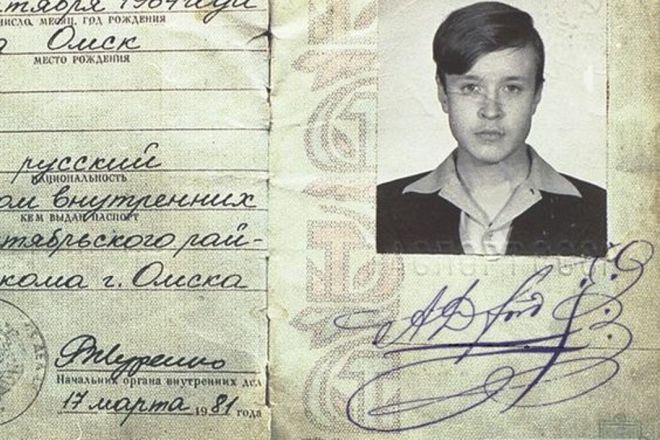 1964 года
ЧИСЛО, МЕСЯЦ, ГОД РОЖДЕНИЯ
Омск
МЕСТО РОЖДЕНИЯ
русский
НАЦИОНАЛЬНОСТЬ
ом внутренних
КЕМ ВЫДАН ПАСПОРТ
тябрьского рай-
кома г. Омска
Начальник органа внутренних дел
17 марта 1981 года